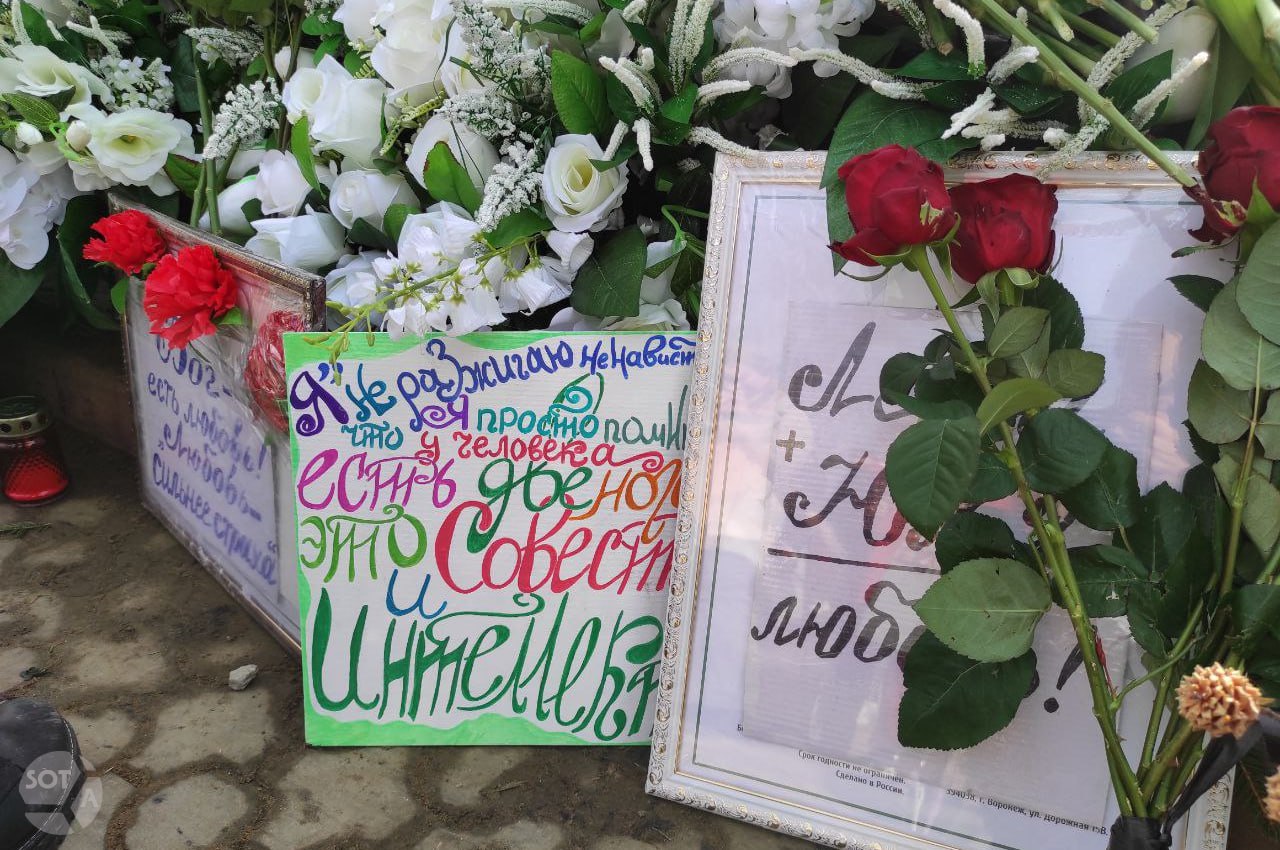 Бог-
есть любовь!
"Любовь-
сильнее страха"
Я не разжигаю ненависть
я просто помню
что у человека
есть две ноги
это Совесть
и
Интеллект
+
любовь!
Срок годности не ограничен.
Сделано в России.
394038, г. Воронеж, ул. Дорожная
SOTA